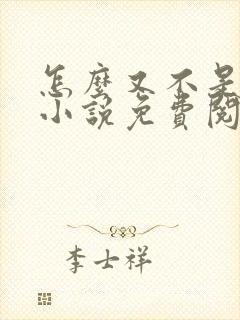 怎麼又不是
小說免費閱
李士祥